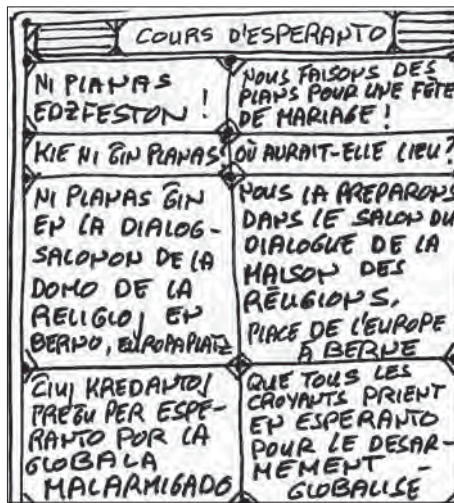 COURS D'ESPERANTO
NI PLANAS
EDZFESTON !
NOUS FAISONS DES
PLANS POUR UNE FÊTE
DE MARIAGE !
KIE NI ĜIN PLANAS?
OÙ AURAIT-ELLE LIEU?
NI PLANAS ĜIN
EN LA DIALOG-
SALONON DE LA
DOMO DE LA
RELIGIOJ EN
BERNO, EUROPAPLATZ
NOUS LA PREPARONS
DANS LE SALON DU
DIALOGUE DE LA
MAISON DES
RELIGIONS,
PLACE DE L'EUROPE
À BERNE
ĈIUJ KREDANTOJ
PREĜU PER ESPE-
RANTO POR LA
GLOBALA
MALARMIGADO
QUE TOUS LES
CROYANTS PRIENT
EN ESPERANTO
POUR LE DESAR-
MEMENT -
GLOBALISE